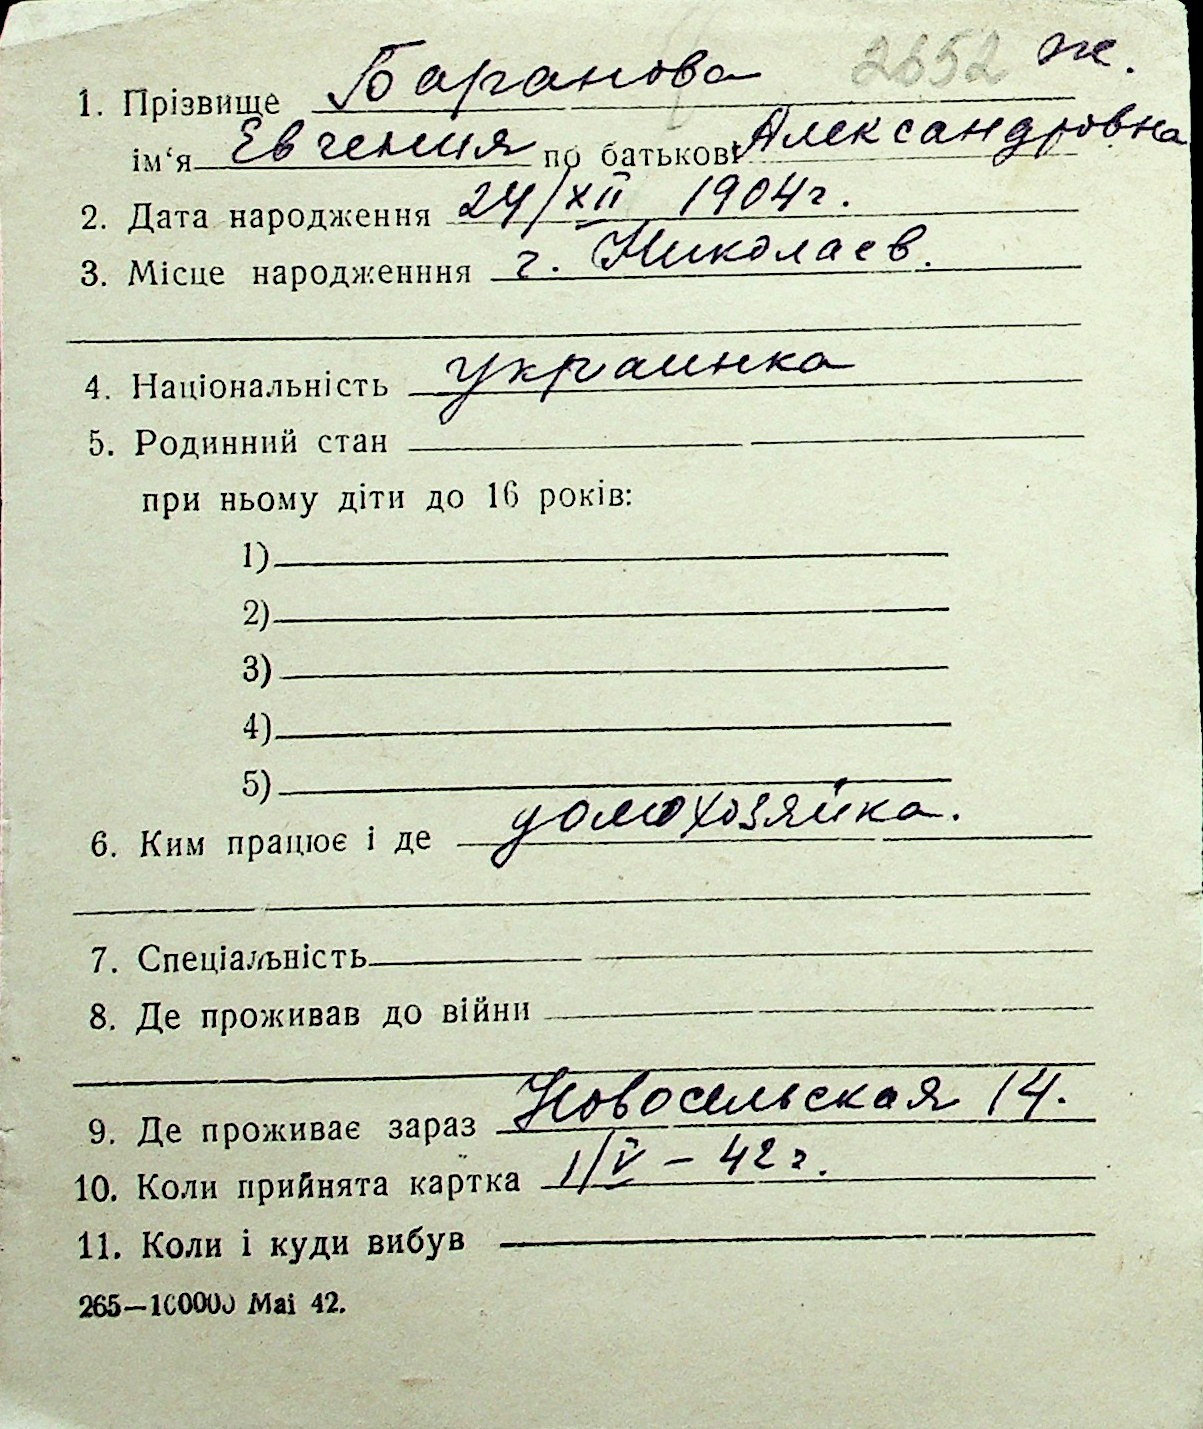 2652 ж.
1. Прізвище Баранова
ім‘я Евгения по батькові Александровна
2. Дата народження 24/XII 1904г.
3. Місце народженння г. Николаев.
4. Національність украинка
5. Родинний стан
при ньому діти до 16 років:
1)
2)
3)
4)
5)
6. Ким працює і де домохозяйка.
7. Спеціальність
8. Де проживав до війни
9. Де проживає зараз Новосельская 14.
10. Коли прийнята картка 1/V – 42 г.
11. Коли і куди вибув
265—100000 Mai 42.